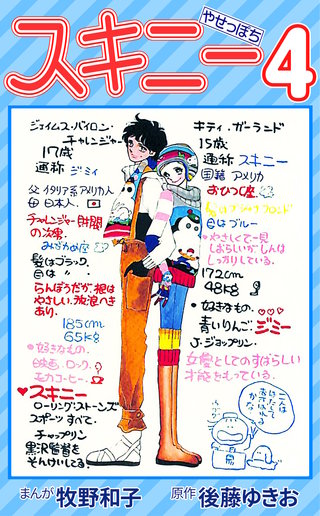 やせっぽち
スキニー4
ジェイムス・バイロン・
チャレンジャー
17歳
通称 ジミィ
父 イタリア系アメリカ人
母 日本人、
チャレンジャー財閥
の次男。
みずがめ座
髪はブラック。
目は 〃
らんぼうだが、根は
やさしい。放浪へき
あり。
185cm
65kg
・好きなもの.
映画、ロック、
モカコーヒー、
♥スキニー
ローリング・ストーンズ
スポーツ すべて.
チャップリン
黒沢監督を
そんけいしてる!
キティ・ガーランド
15歳
通称 スキニー
国籍 アメリカ
おひつじ座
目はブルー
・やさしくて一見
しっかりしている。
172cm
48kg
・好きなもの.
青いりんご. ジミー
J・ジョップリン.
女優としてのすばらしい
才能をもっている.
まんが 牧野和子 原作 後藤ゆきお